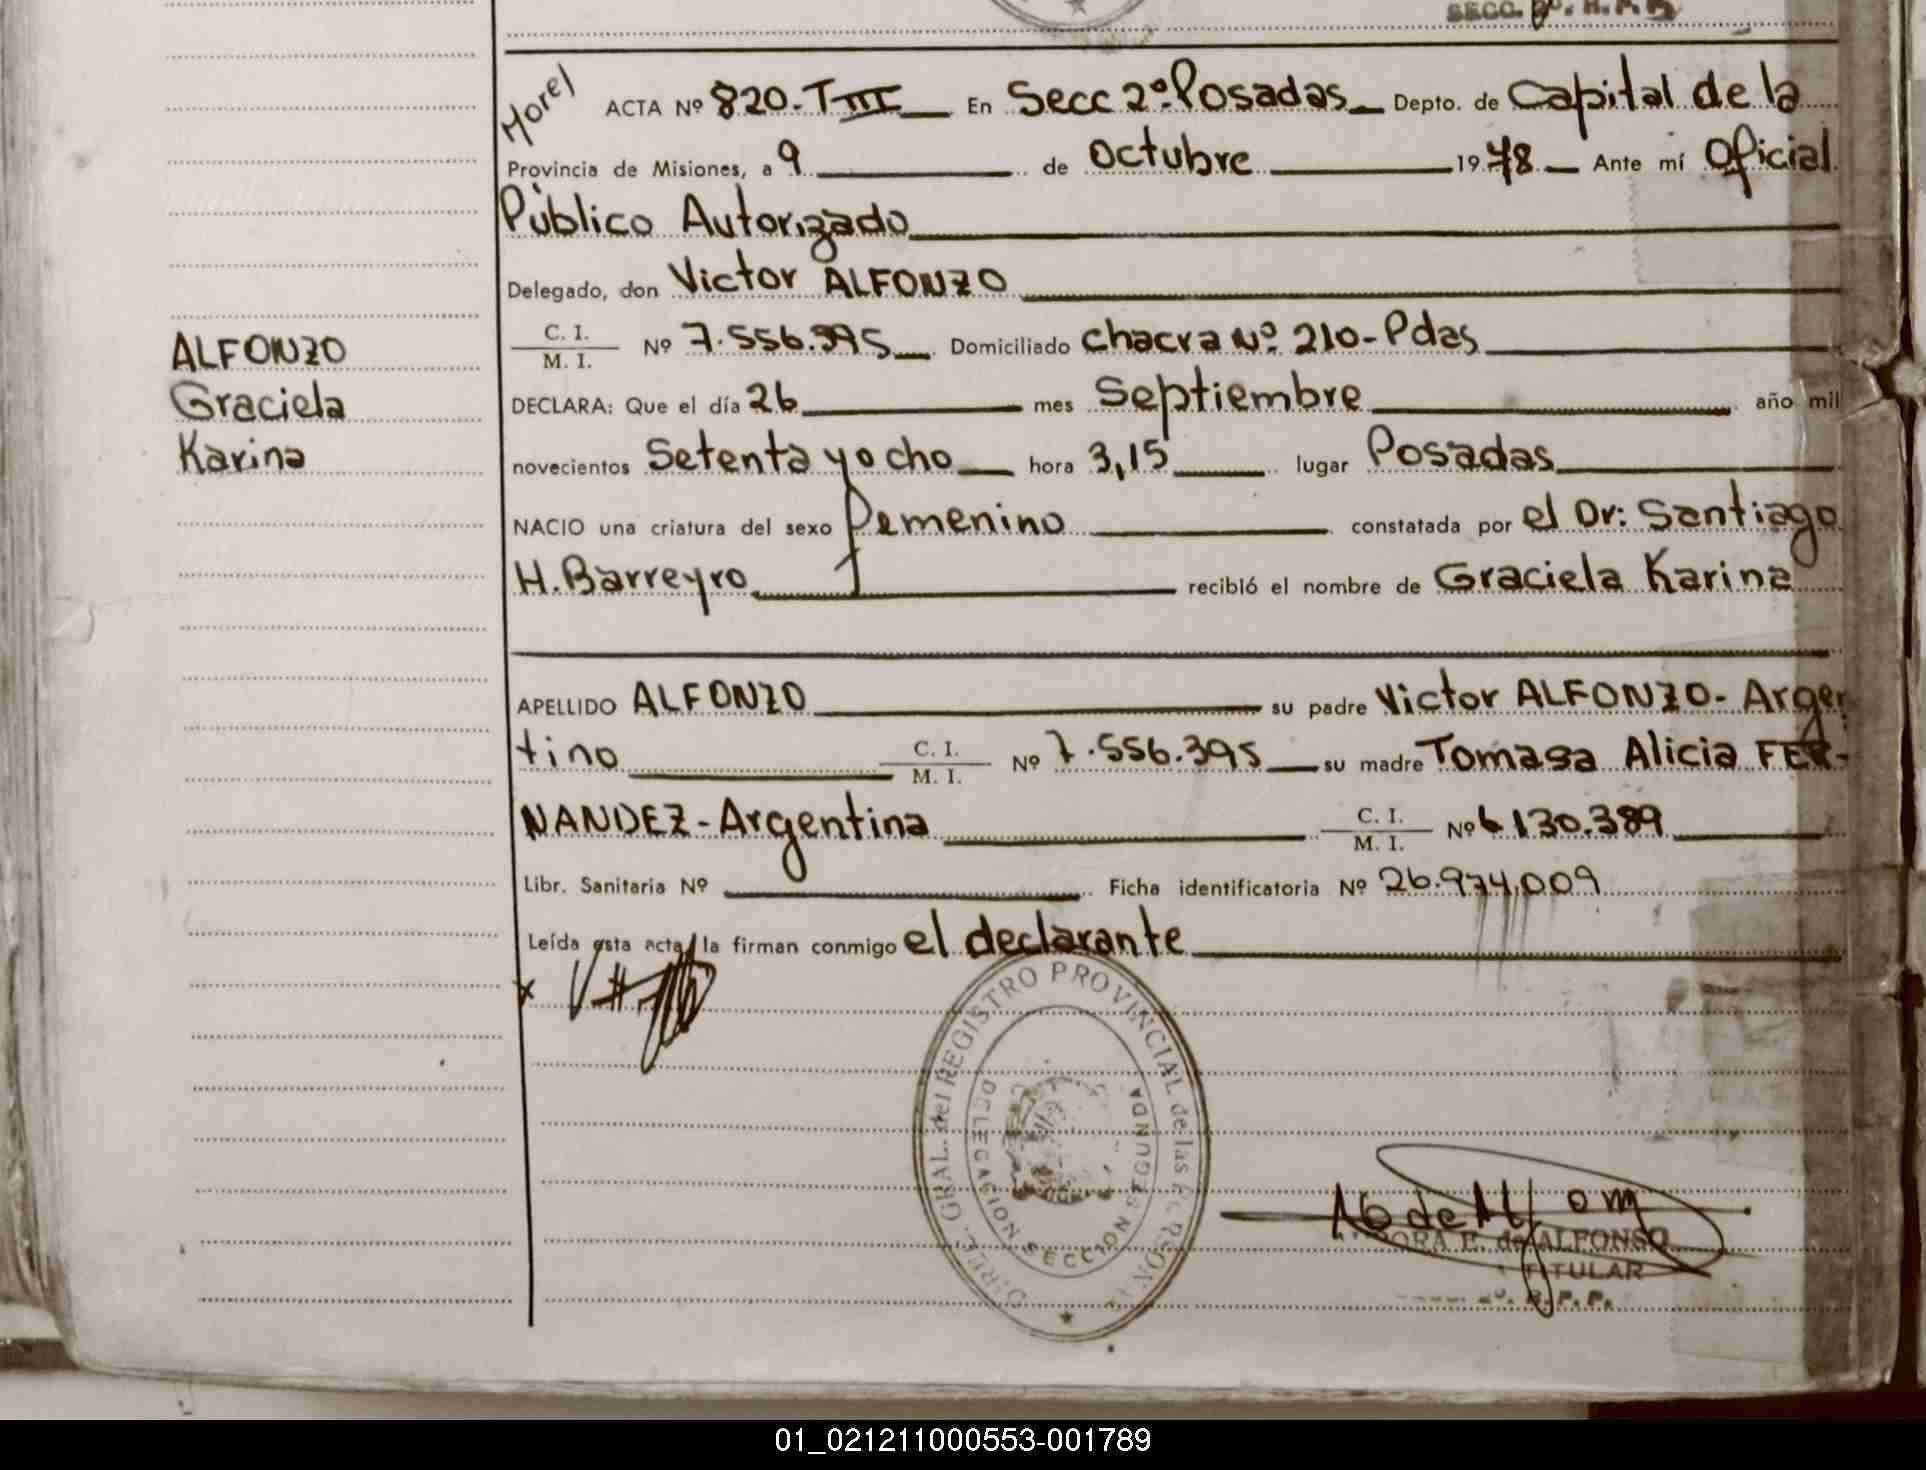 SECC. 2º. R. P. P.
Morel
ACTA Nº 820-TIII En Secc 2º-Posadas Depto. de Capital de la
Provincia de Misiones, a 9 de Octubre 1978 Ante mí Oficial
Público Autorizado
Delegado, don Victor ALFONZO
C. I.
M. I. Nº 7.556.395 Domiciliado chacra Nº 210-Pdas
ALFONZO
Graciela
Karina
DECLARA: Que el día 26 mes Septiembre año mil
novecientos Setenta y ocho hora 3,15 lugar Posadas
NACIO una criatura del sexo femenino constatada por el Dr: Santiago
H. Barreyro recibió el nombre de Graciela Karina
APELLIDO ALFONZO su padre Victor ALFONZO- Argen
tino C. I.
M. I. Nº 7.556.395 su madre Tomasa Alicia FER-
NANDEZ-Argentina C. I.
M. I. Nº 6130.389
Libr. Sanitaria Nº Ficha identificatoria Nº 26.974,009
Leída esta acta, la firman conmigo el declarante
DIREC. GRAL. del REGISTRO PROVINCIAL de las PERSONAS
DELEGACION SECCION SEGUNDA
E. de ALFONSO
TITULAR
2º. R. P. P.
01_021211000553-001789